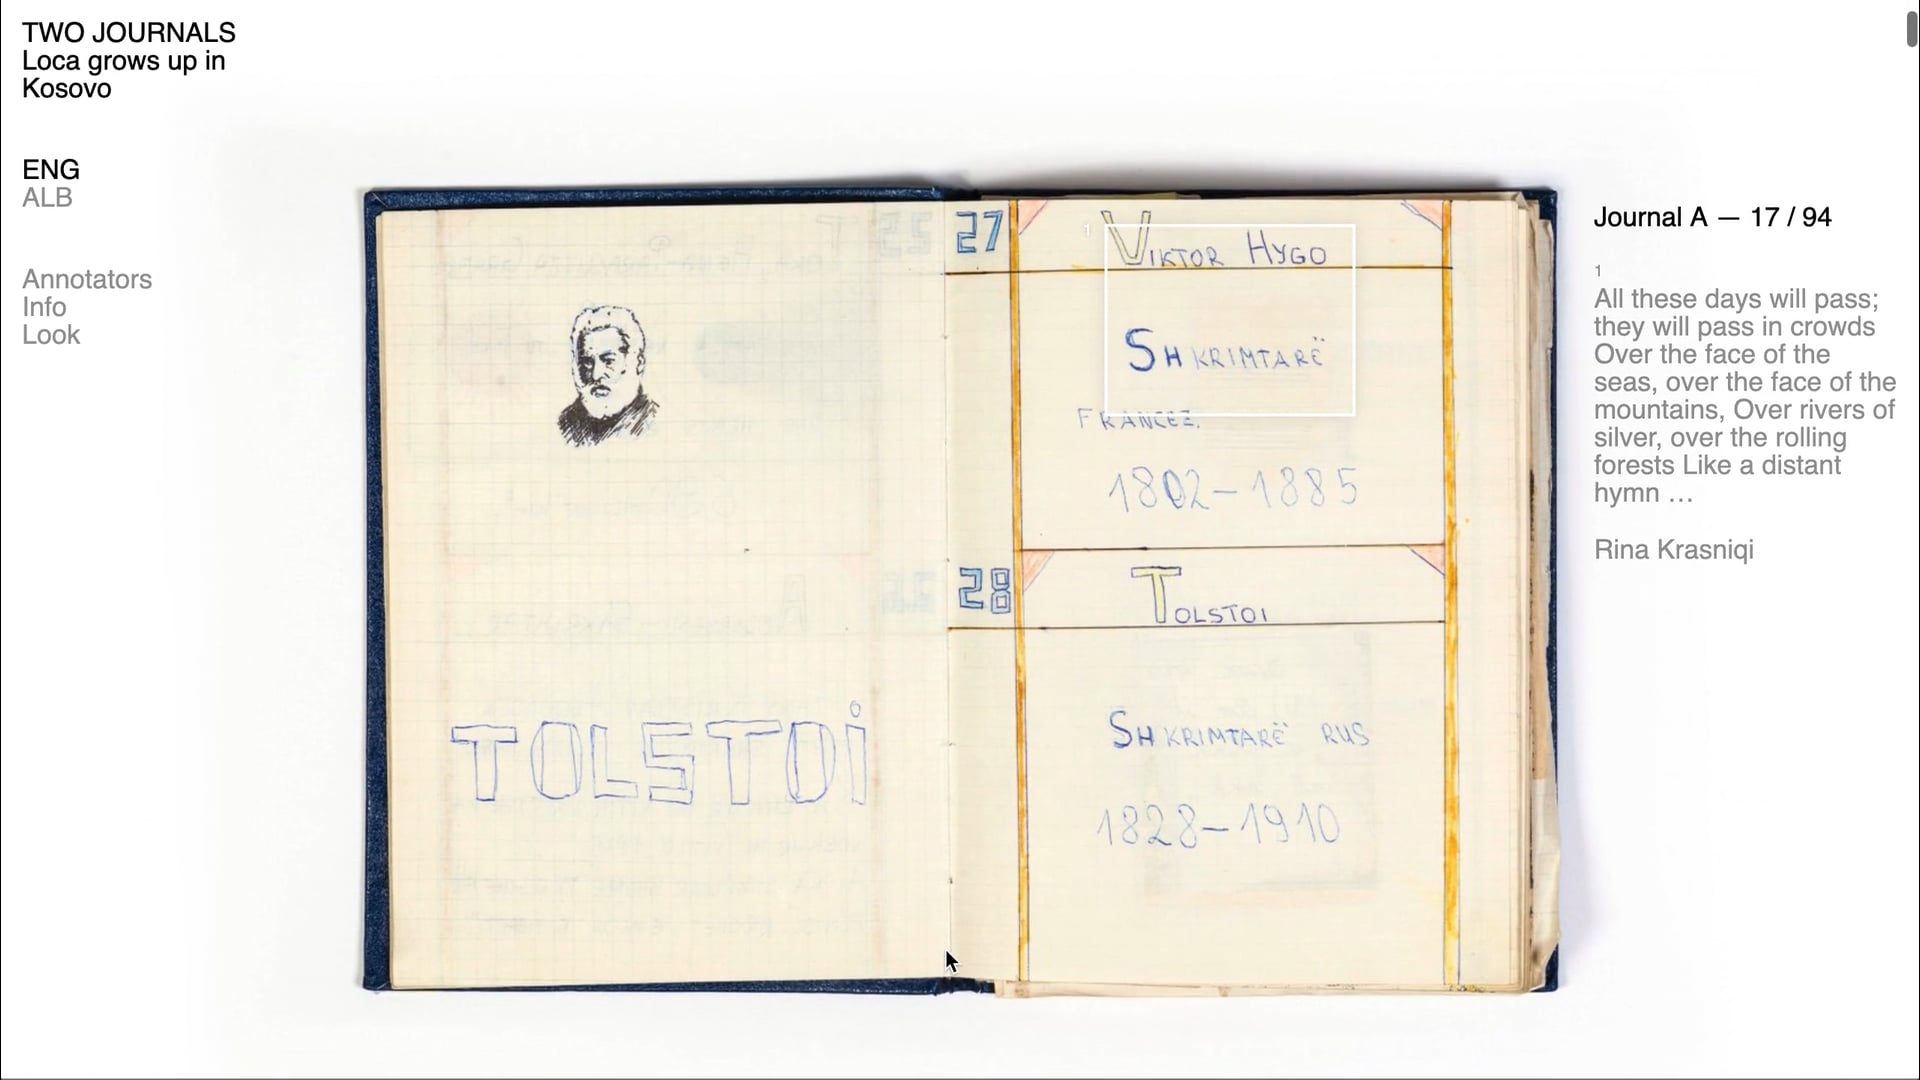 TWO JOURNALS
Loca grows up in
Kosovo
ENG
ALB
Annotators
Info
Look
TOLSTOi
27
1
VIKTOR HYGO
SHKRIMTARË
FRANCEZ.
1802-1885
28
TOLSTOI
SHKRIMTARË RUS
1828-1910
Journal A — 17 / 94
1
All these days will pass;
they will pass in crowds
Over the face of the
seas, over the face of the
mountains, Over rivers of
silver, over the rolling
forests Like a distant
hymn …
Rina Krasniqi